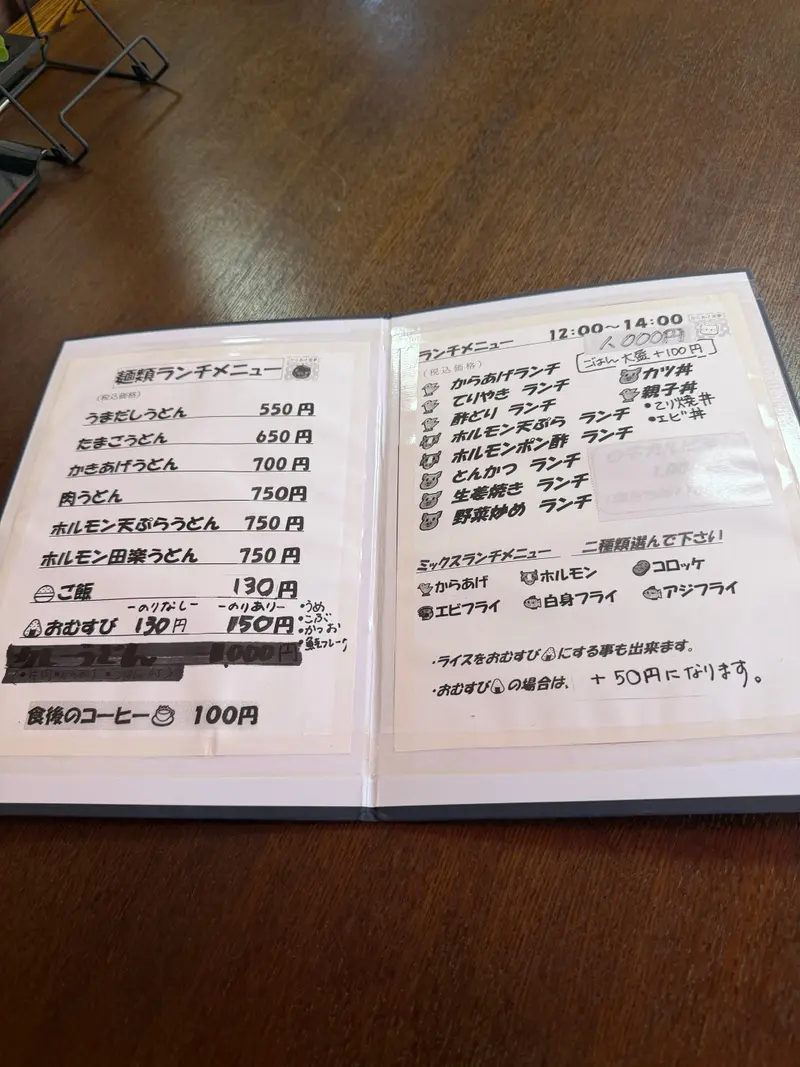 麺類ランチメニュー
(税込価格)
うまだしうどん 550円
たまごうどん 650円
かきあげうどん 700円
肉うどん 750円
ホルモン天ぷらうどん 750円
ホルモン田楽うどん 750円
ご飯 130円
-のりなし- -のりあり-
おむすび 130円 150円
・うめ
・こぶ
・かつお
・鮭フレーク
カレーうどん 1,000円
食後のコーヒー 100円
ランチメニュー 12:00~14:00
(税込価格) 1,000円
ごはん大盛+100円
からあげランチ
てりやき ランチ
酢どり ランチ
ホルモン天ぷら ランチ
ホルモンポン酢 ランチ
とんかつ ランチ
生姜焼き ランチ
野菜炒め ランチ
カツ丼
親子丼
・てり焼丼
・エビ丼
ミックスランチメニュー 二種類選んで下さい
からあげ ホルモン コロッケ
エビフライ 白身フライ アジフライ
・ライスをおむすびにする事も出来ます。
・おむすびの場合は、+50円になります。